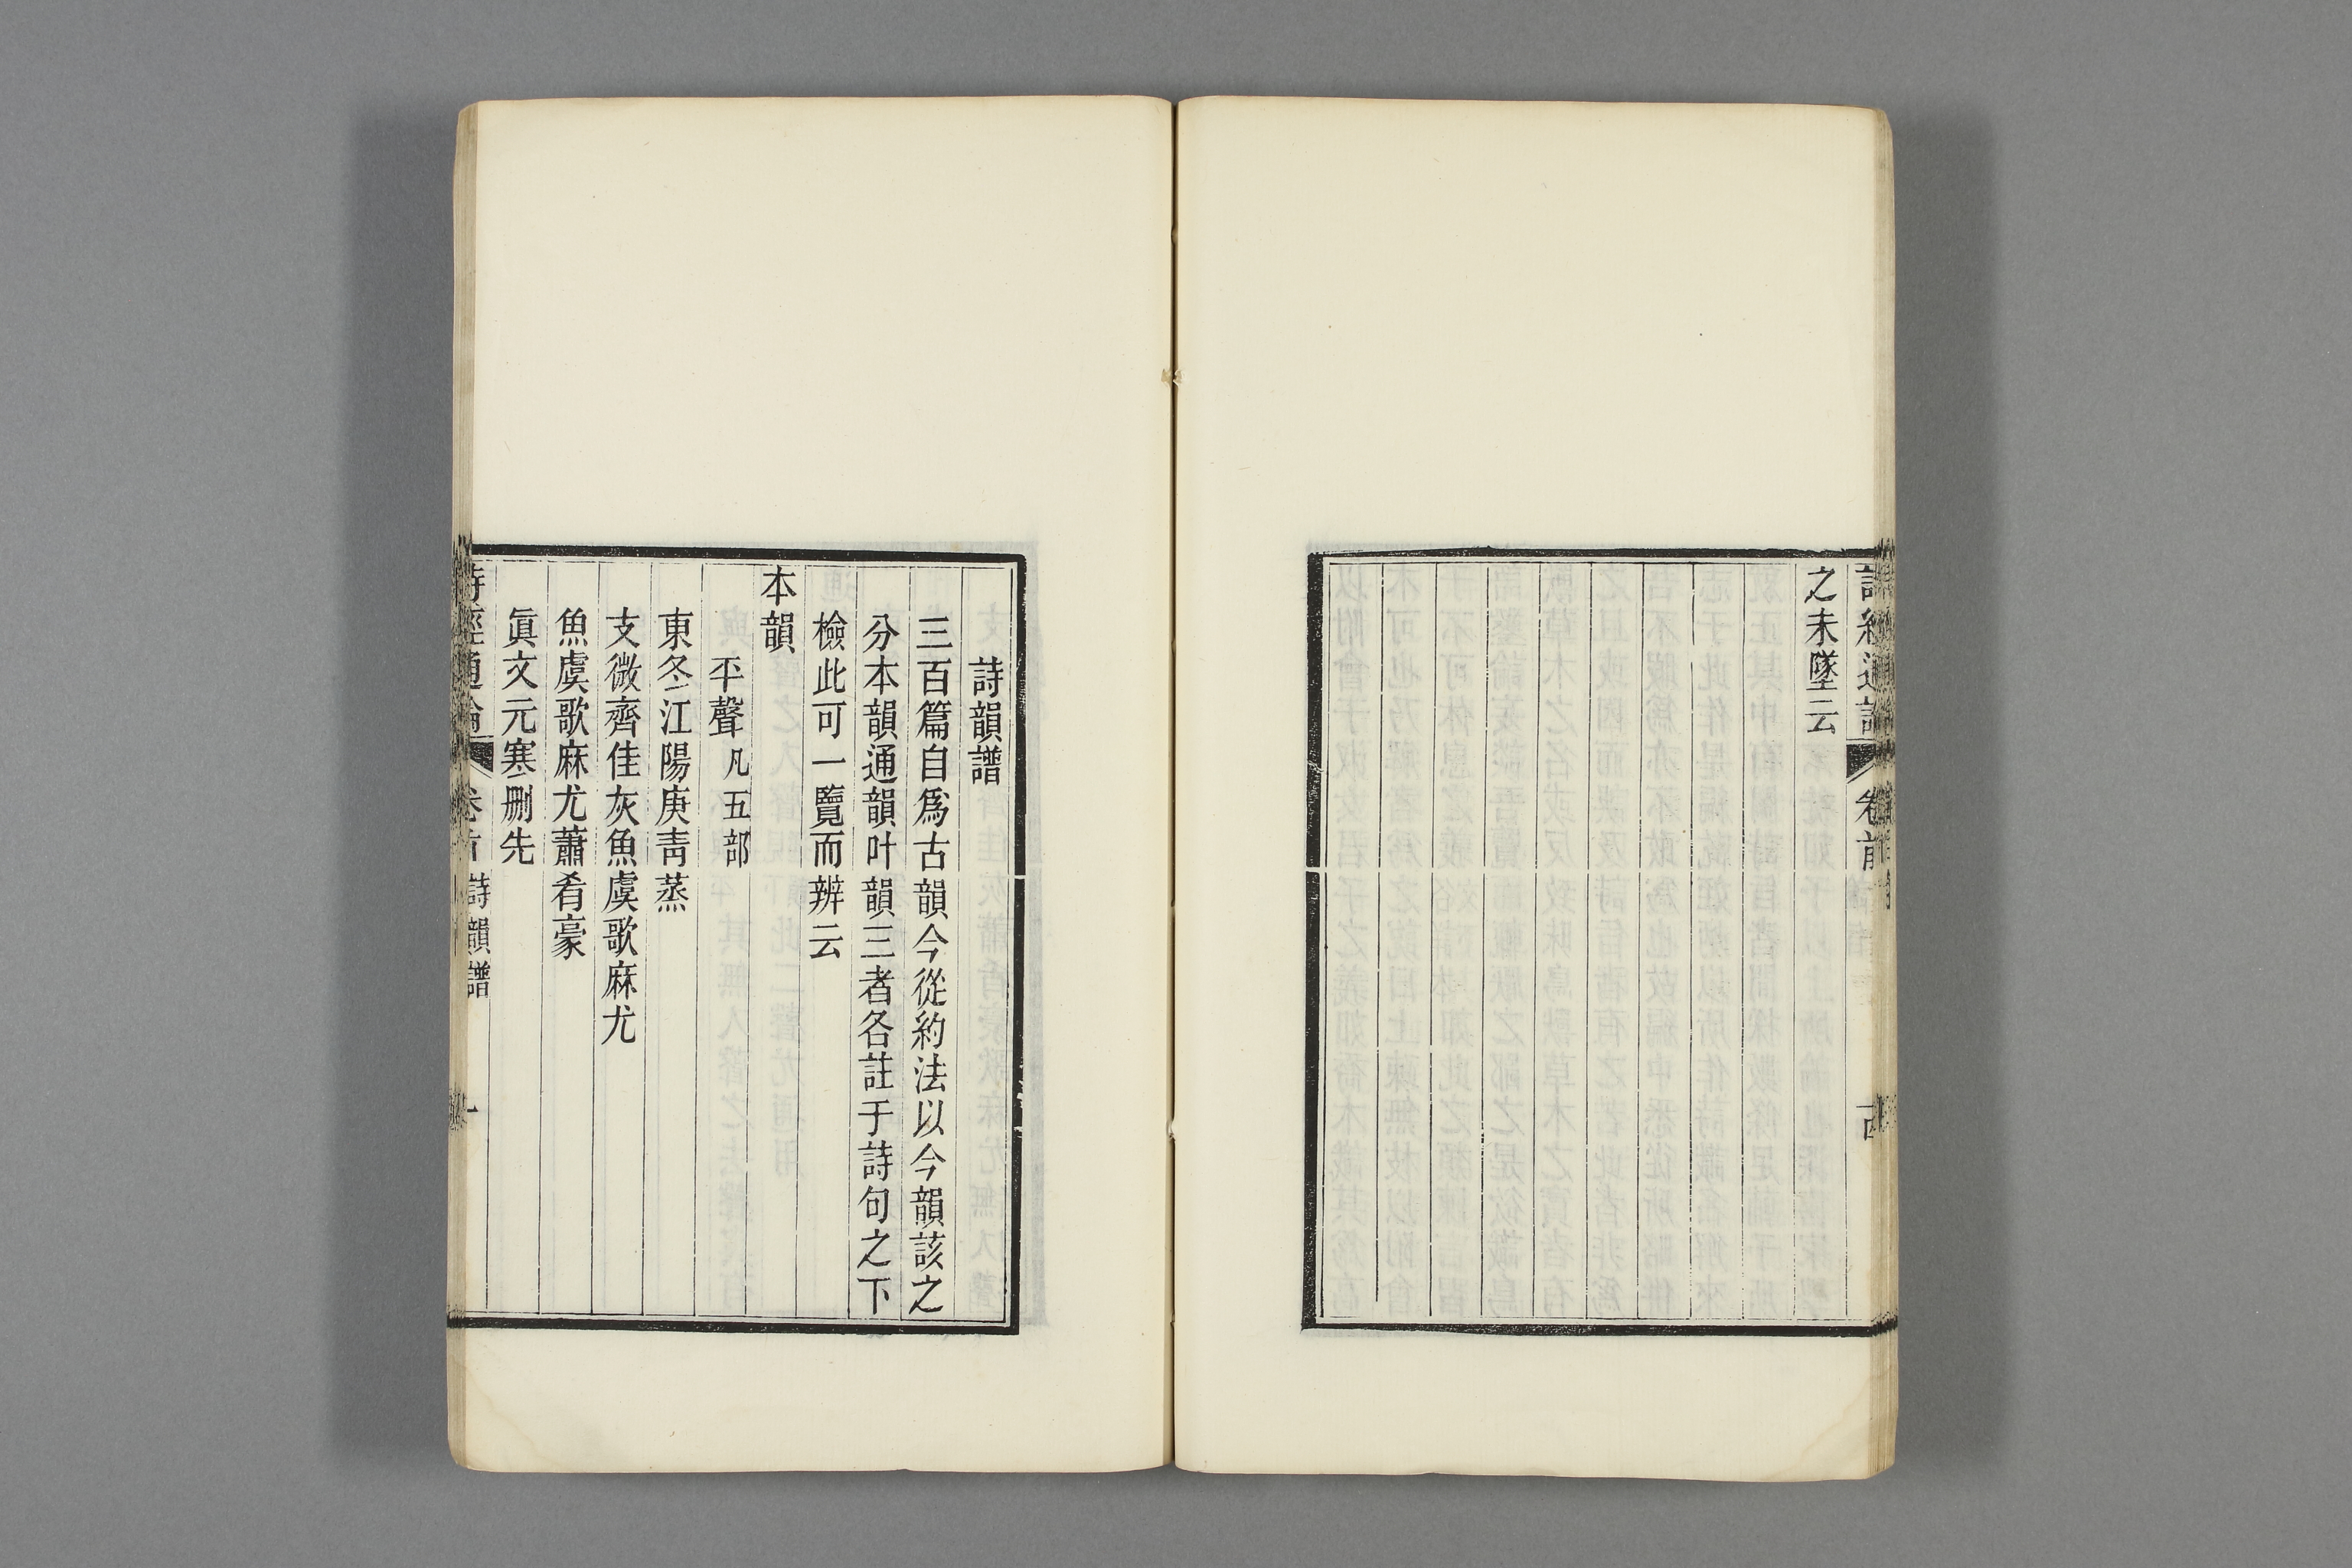 之未墜云
詩經通論
卷前
詩韻譜
三百篇自爲古韻今從約法以今韻該之
分本韻通韻叶韻三者各註于詩句之下
檢此可一覽而辨云
本韻
平聲凡五部
東冬江陽庚靑蒸
支微齊佳灰魚虞歌麻尤
魚虞歌麻尤蕭肴豪
眞文元寒刪先
詩經通論
卷首
詩韻譜
一